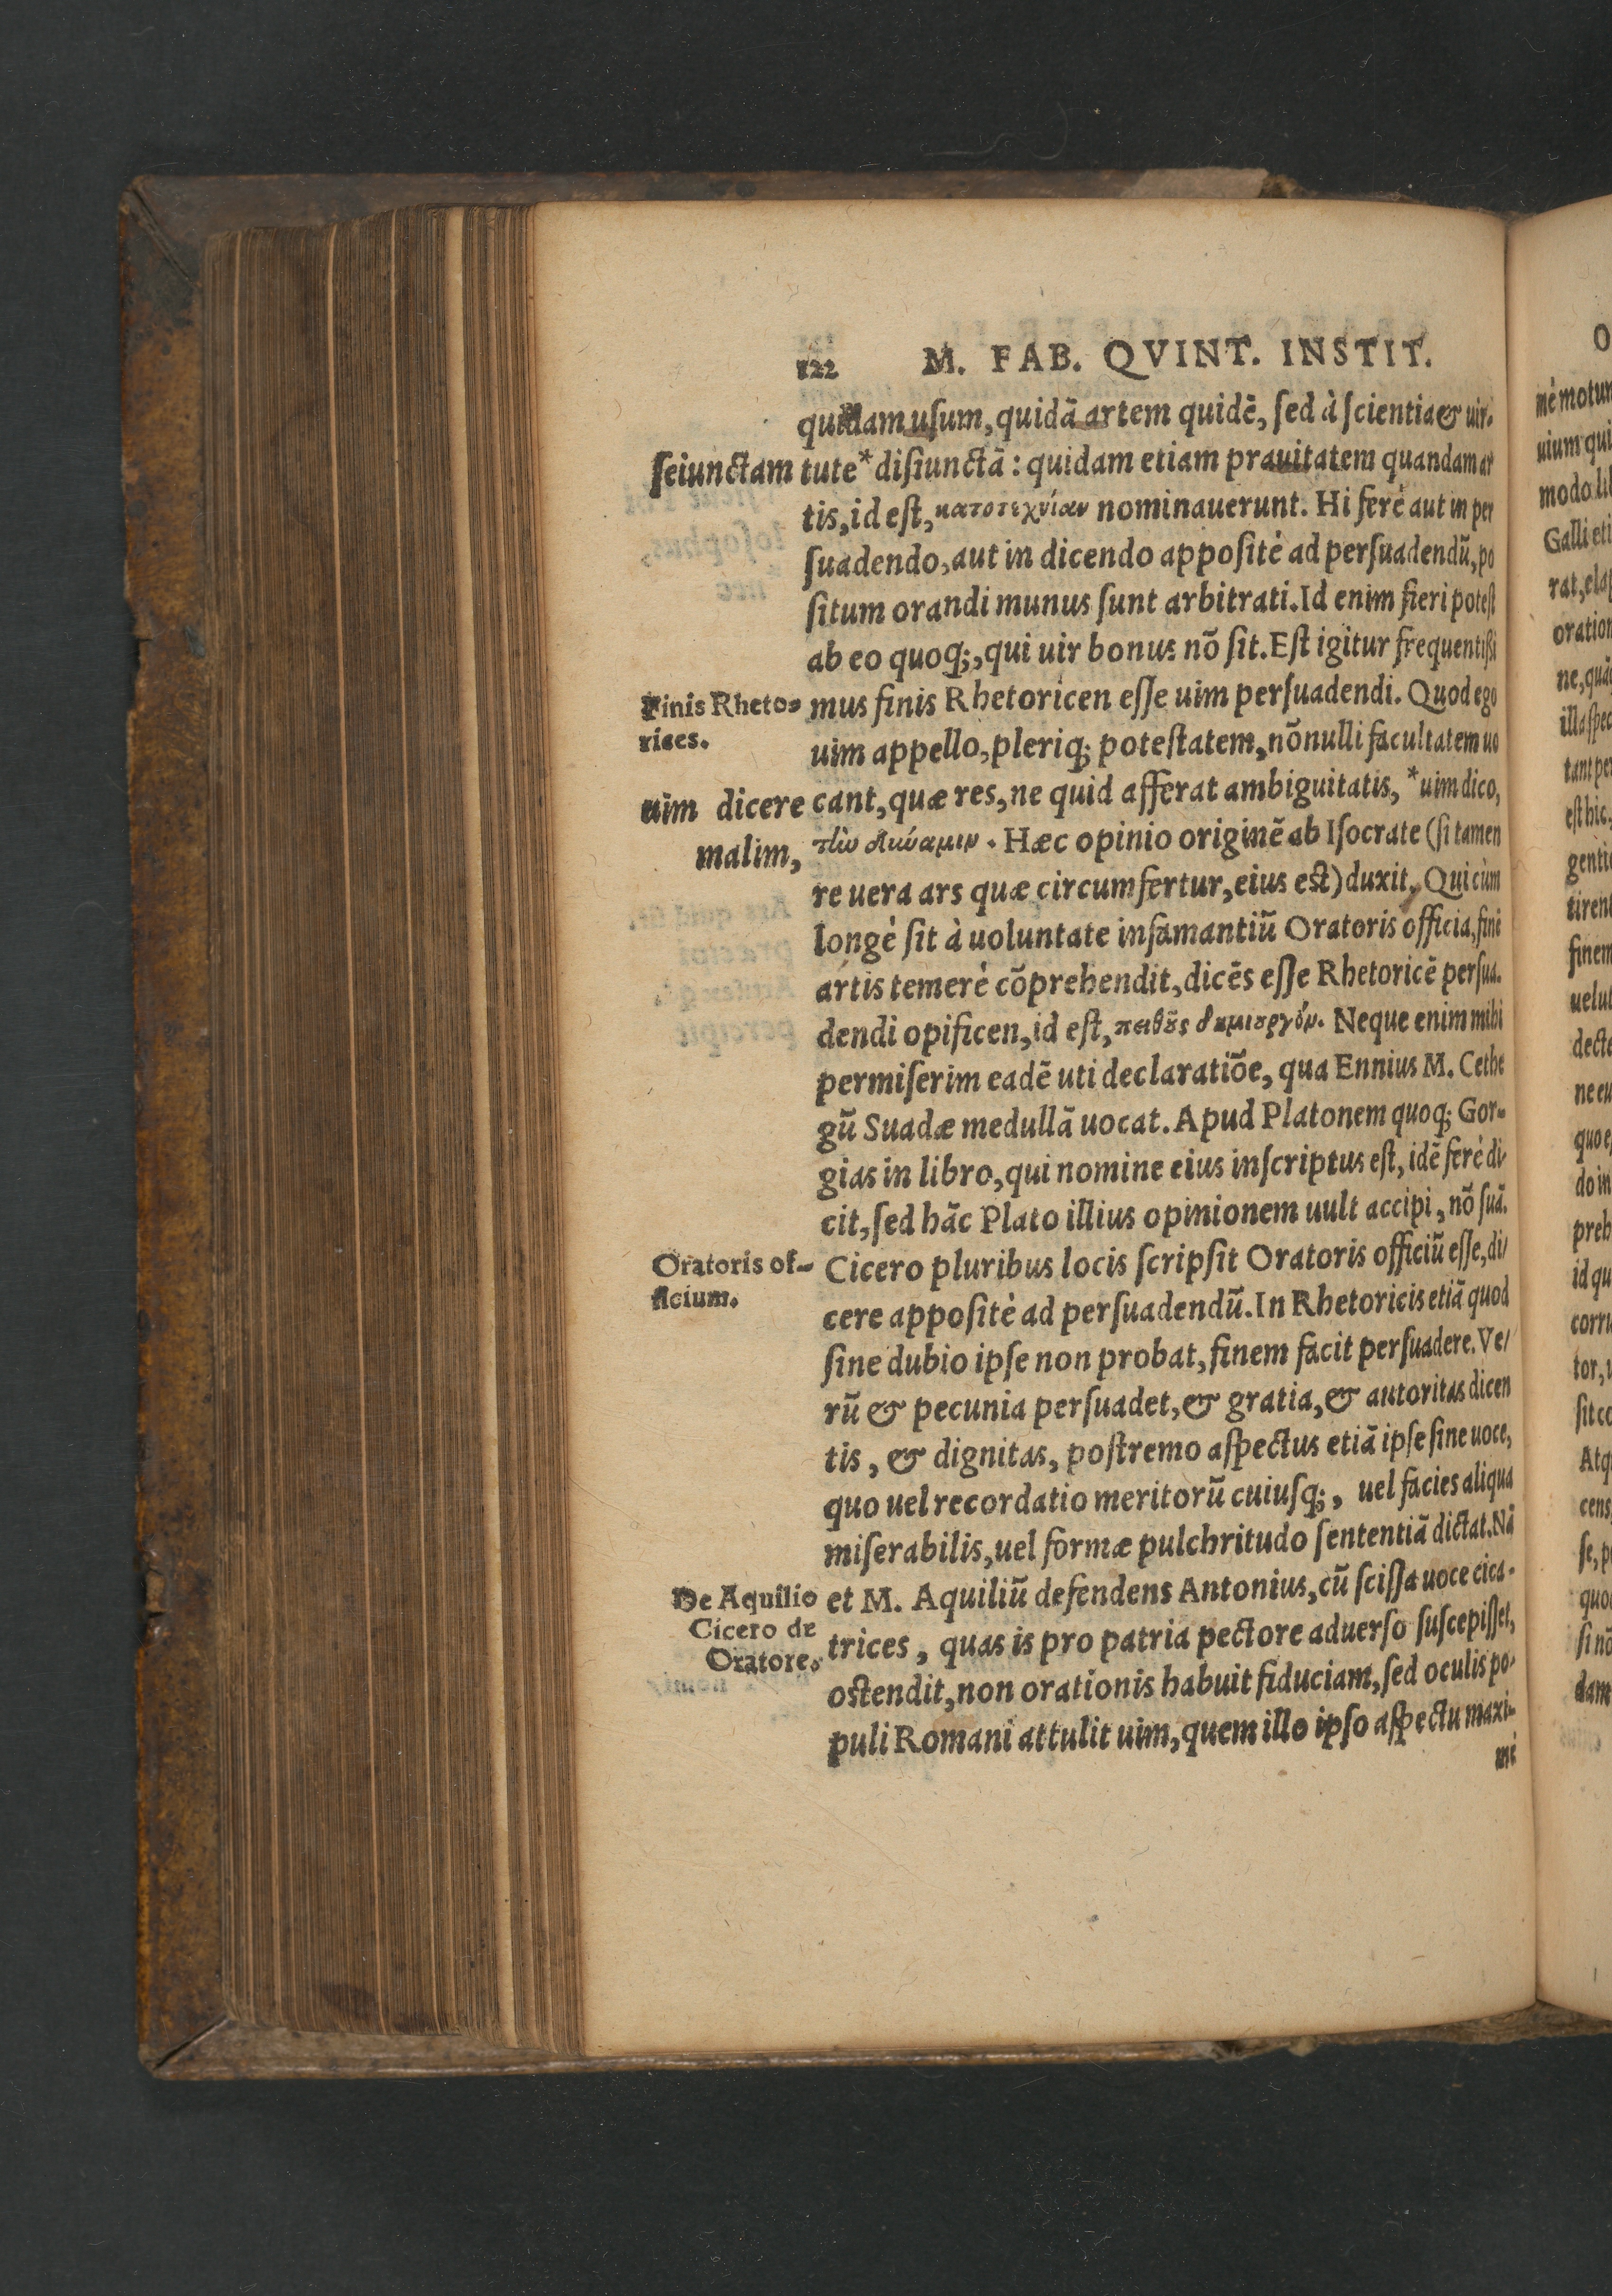 122 M. FAB. QVINT. INSTIT.
quidam uſum, quidā artem quidē, ſed à ſcientia & uir-
ſeiunctam
tute * diſiunctā: quidam etiam prauitatem quandam ar
tis, id eſt, κατοτεχνίαν nominauerunt. Hi ferè aut in per
ſuadendo, aut in dicendo appoſitè ad perſuadendū, po
ſitum orandi munus ſunt arbitrati. Id enim fieri poteſt
ab eo quoq;, qui uir bonus nō ſit. Eſt igitur frequentiſſi
Finis Rheto-
rices.
mus finis Rhetoricen eſſe uim perſuadendi. Quod ego
uim appello, pleriq; poteſtatem, nōnulli facultatem uo
uim dicere
malim,
cant, quæ res, ne quid afferat ambiguitatis, * uim dico,
τὴν δύναμιν. Hæc opinio originē ab Iſocrate (ſi tamen
re uera ars quæ circumfertur, eius eſt) duxit. Qui cùm
longè ſit à uoluntate infamantiū Oratoris officia, finē
artis temerè cōprehendit, dicēs eſſe Rhetoricē perſua-
dendi opificen, id eſt, πειθȣ͂ς δημιȣργόν. Neque enim mihi
permiſerim eadē uti declaratiōe, qua Ennius M. Cethe
gū Suadæ medullā uocat. Apud Platonem quoq; Gor-
gias in libro, qui nomine eius inſcriptus eſt, idē ferè di-
cit, ſed hāc Plato illius opinionem uult accipi, nō ſuā.
Oratoris of-
ficium.
Cicero pluribus locis ſcripſit Oratoris officiū eſſe, di/
cere appoſitè ad perſuadendū. In Rhetoricis etiā quod
ſine dubio ipſe non probat, finem facit perſuadere. Ve/
rū & pecunia perſuadet, & gratia, & autoritas dicen
tis, & dignitas, poſtremo aſpectus etiā ipſe ſine uoce,
quo uel recordatio meritorū cuiuſq;, uel facies aliqua
miſerabilis, uel formæ pulchritudo ſententiā dictat. Nā
De Aquilio
Cicero de
Oratore.
et M. Aquiliū defendens Antonius, cū ſciſſa uoce cica-
trices, quas is pro patria pectore aduerſo ſuſcepiſſet,
oſtendit, non orationis habuit fiduciam, ſed oculis po-
puli Romani attulit uim, quem illo ipſo aſpectu maxi-
mè
O
mè motum
uium qui
modo
Galli eti
oration
finem
decte